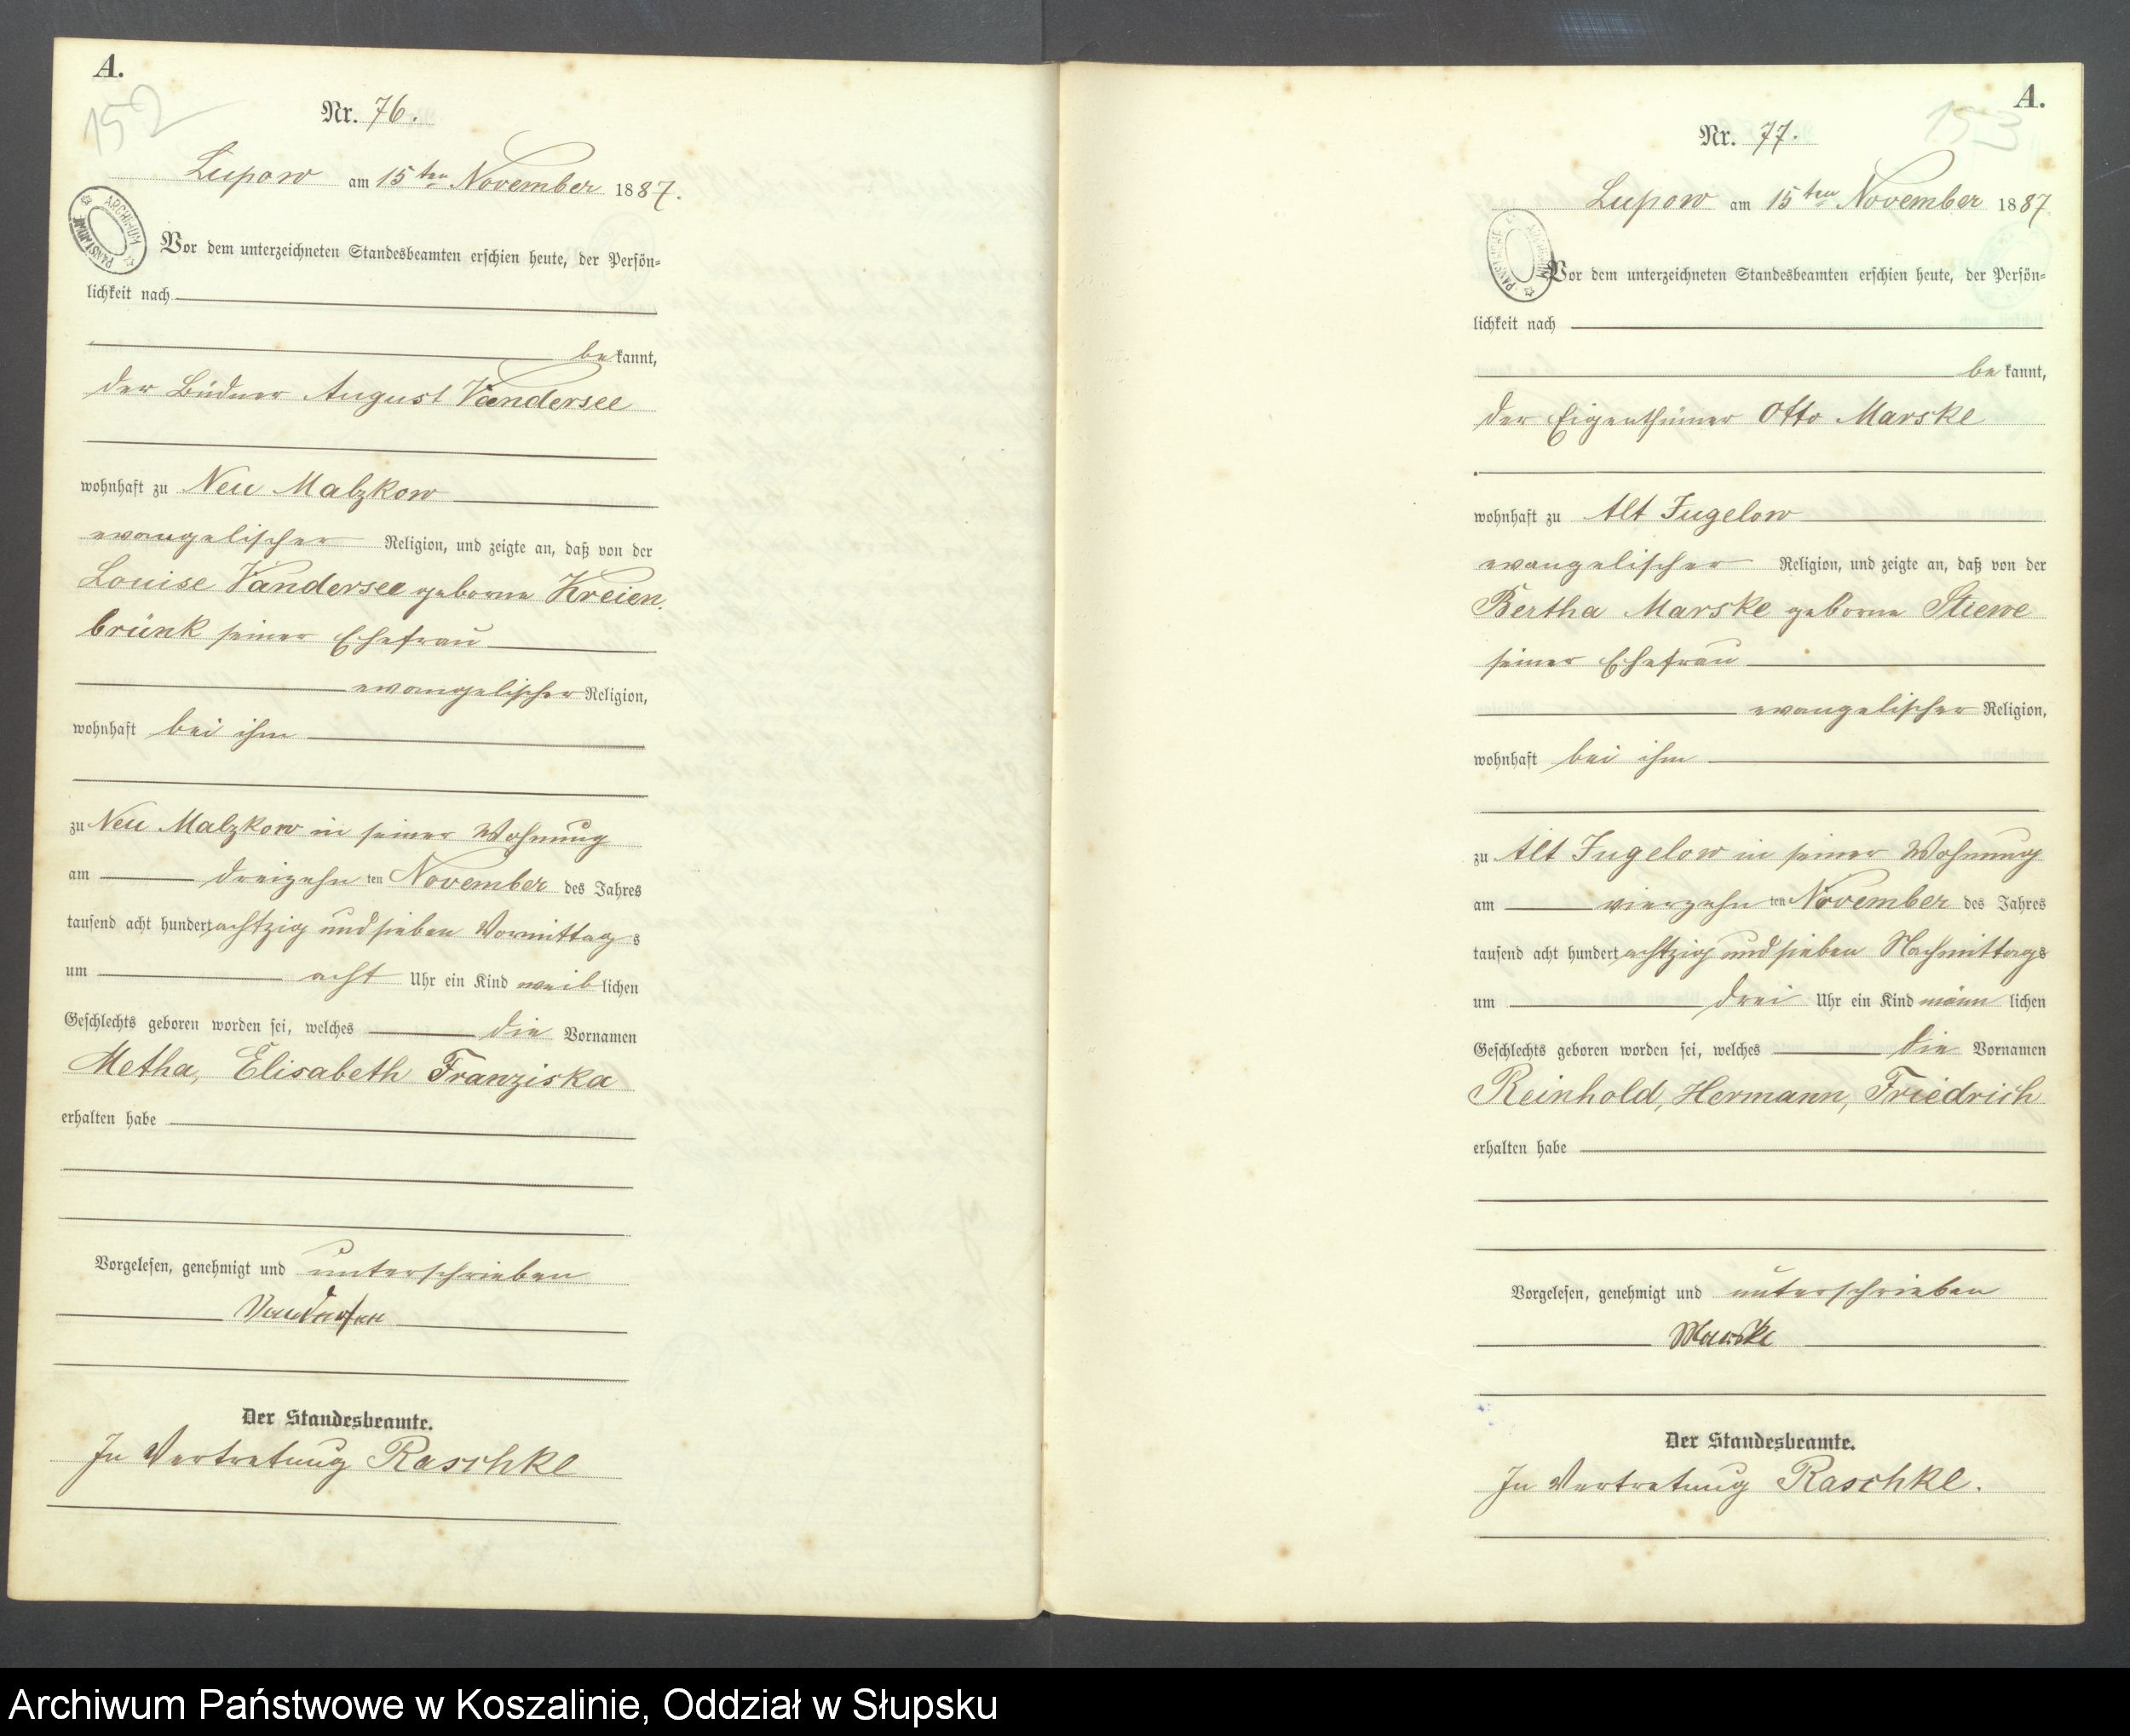 A.
152
Nr. 76.
Lupow am 15ten November 1887.
ARCHIWUM PAŃSTWOWE
Vor dem unterzeichneten Standesbeamten erschien heute, der Persön=
lichkeit nach
bekannt,
der Büdner August Vandersee
wohnhaft zu Neu Malzkow
evangelischer Religion, und zeigte an, daß von der
Louise Vandersee geborne Kreien
brünk seiner Ehefrau
evangelischer Religion,
wohnhaft bei ihm
zu Neu Malzkow in seiner Wohnung
am dreizehn ten November des Jahres
tausend acht hundert achtzig und sieben Vormittags
um acht Uhr ein Kind weiblichen
Geschlechts geboren worden sei, welches die Vornamen
Metha, Elisabeth Franziska
erhalten habe
Vorgelesen, genehmigt und unterschrieben
Vandersee
Der Standesbeamte.
In Vertretung Raschke
A.
153
Nr. 77.
Lupow am 15ten November 1887
PAŃSTWOWE ARCHIWUM
Vor dem unterzeichneten Standesbeamten erschien heute, der Persön=
lichkeit nach
bekannt,
der Eigenthümer Otto Marske
wohnhaft zu Alt Jugelow
evangelischer Religion, und zeigte an, daß von der
Bertha Marske geborne Stiewe
seiner Ehefrau
evangelischer Religion,
wohnhaft bei ihm
zu Alt Jugelow in seiner Wohnung
am vierzehn ten November des Jahres
tausend acht hundert achtzig und sieben Nachmittags
um drei Uhr ein Kind männlichen
Geschlechts geboren worden sei, welches die Vornamen
Reinhold, Hermann, Friedrich
erhalten habe
Vorgelesen, genehmigt und unterschrieben
Marske
Der Standesbeamte.
In Vertretung Raschke.
Archiwum Państwowe w Koszalinie, Oddział w Słupsku